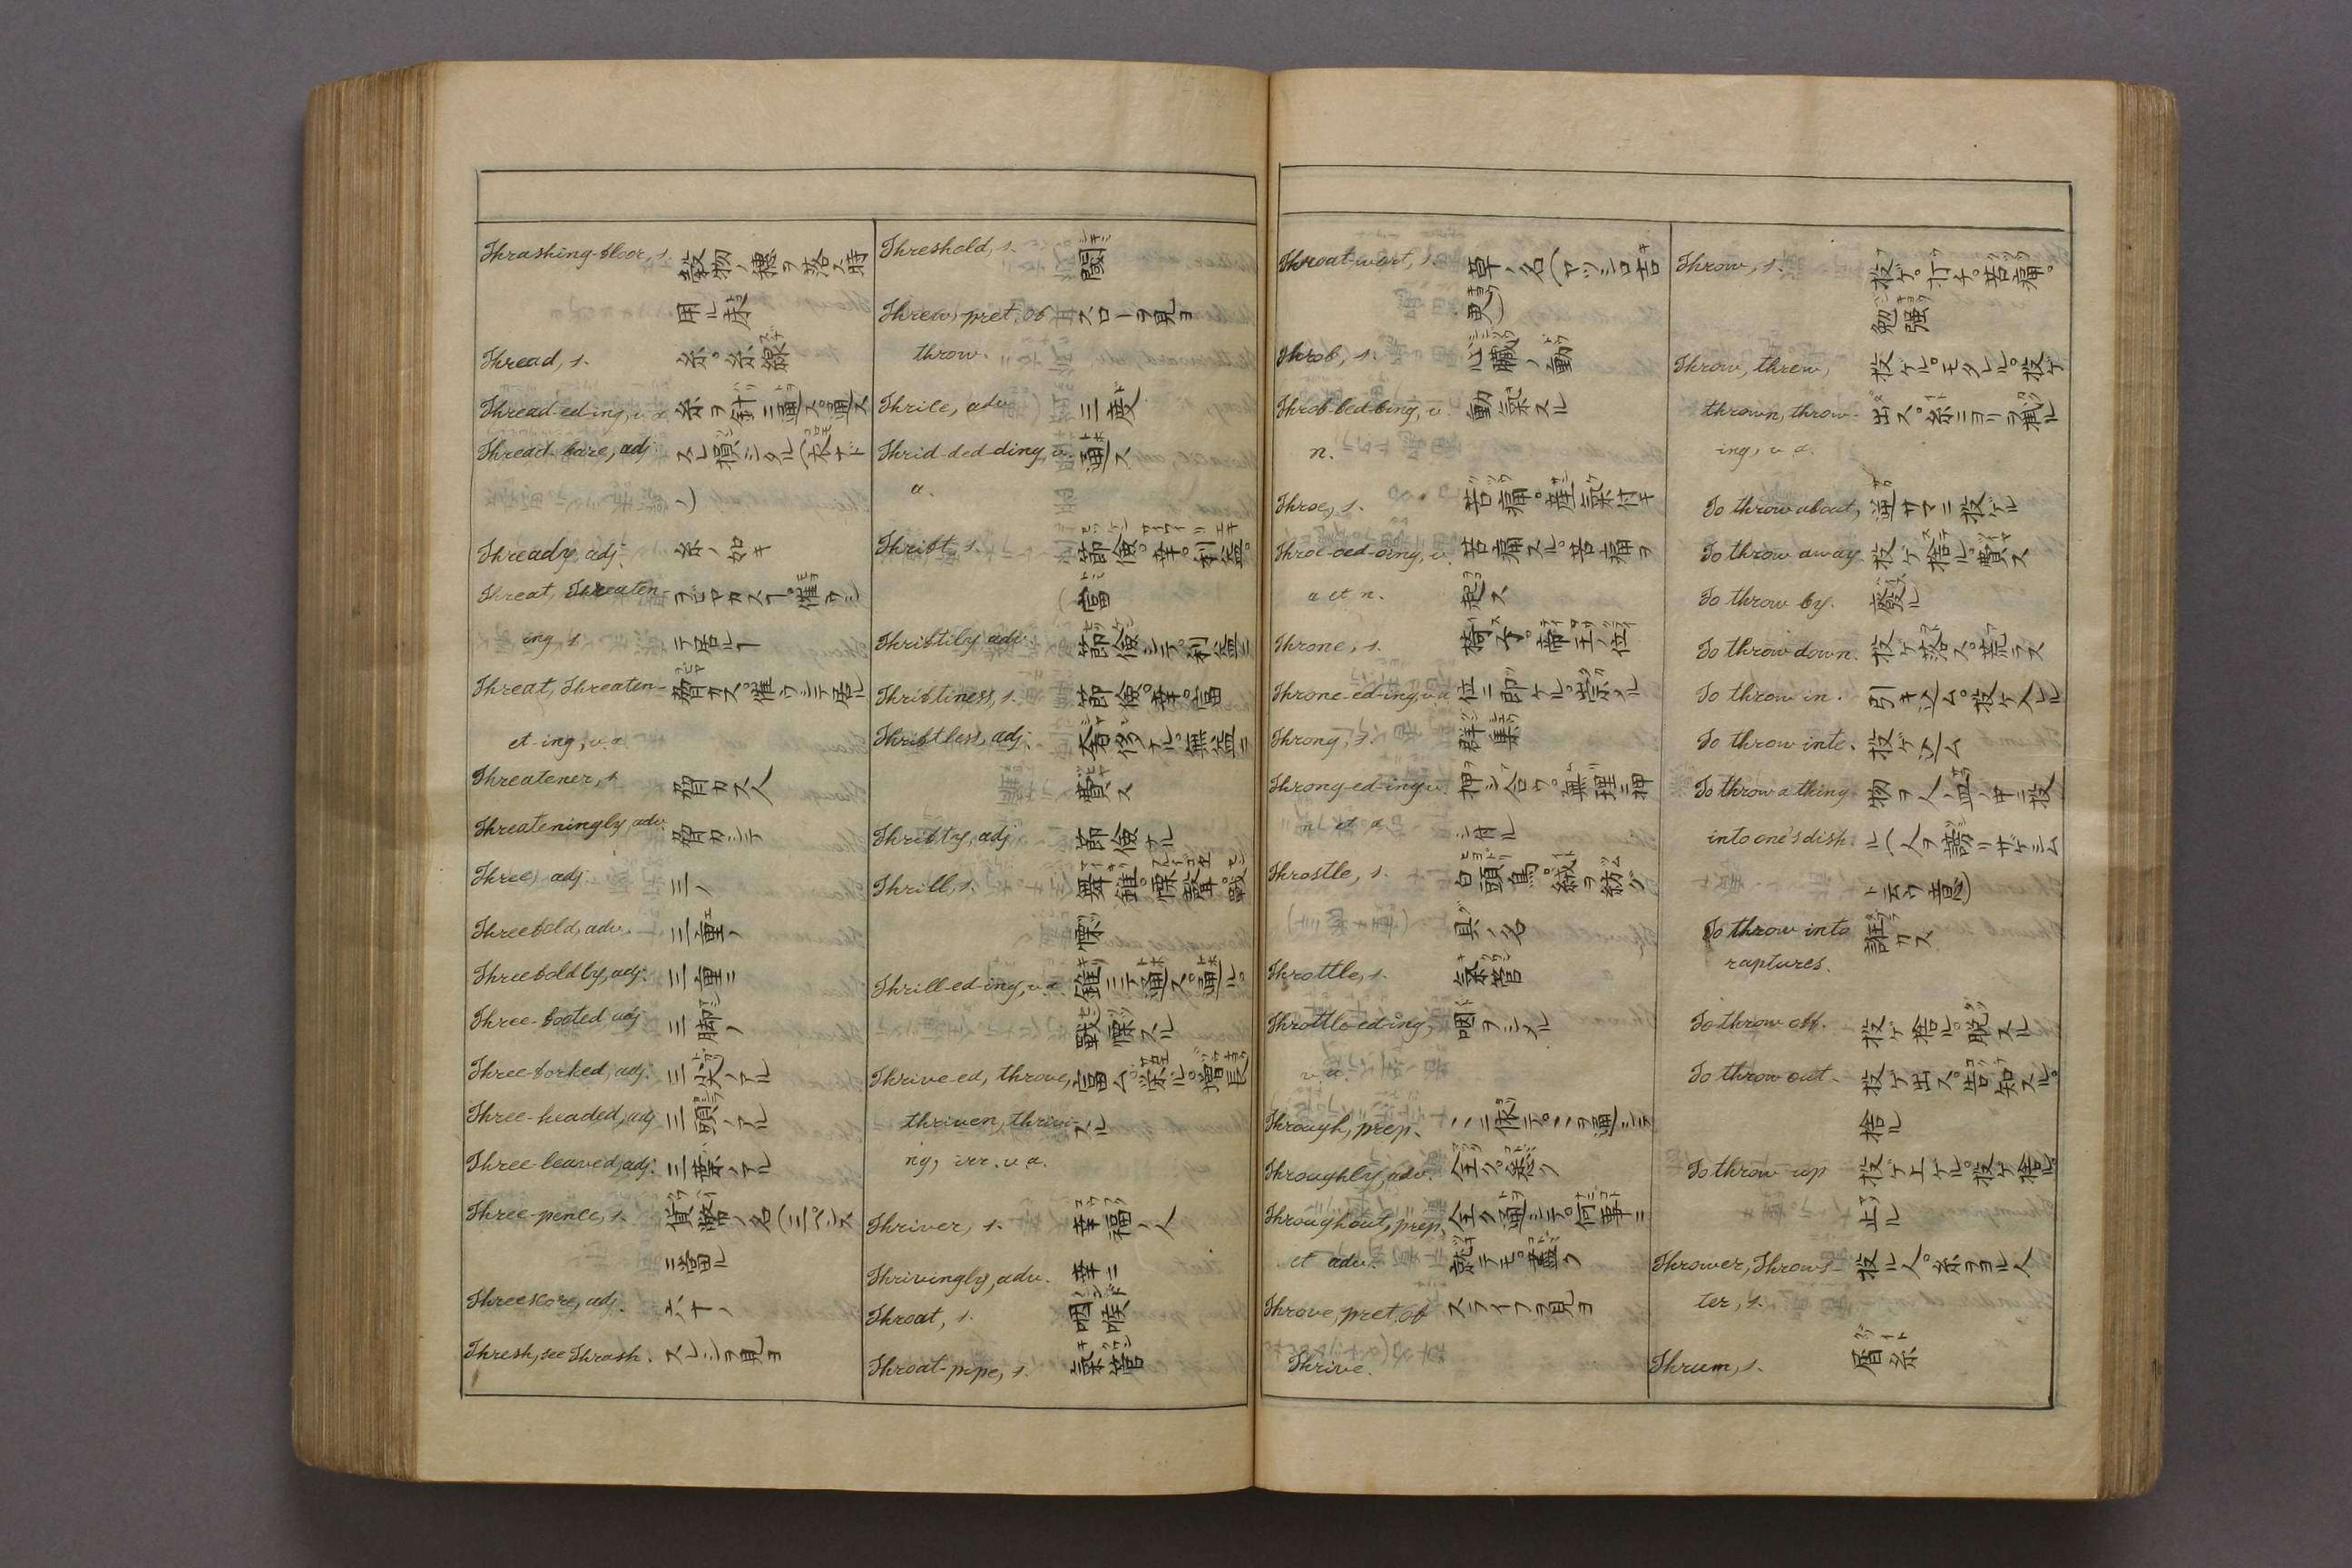 Thrashing-floor, s. 穀物ノ穂ヲ落ス時
用ル床
Thread, s. 糸。糸線
Thread-ed-ing, v.a. 糸ヲ針ニ通ス。通ス
Thread-bare, adj. スレ損シタル(衣ナド
ノ)
Thready, adj. 糸ノ如キ
Threat, Threaten- ヲビヤカスヿ。催ウシ
ing, s. テ居ルヿ
Threat, Threaten- 脅カス。催ウシテ居ル
et-ing, v.a.
Threatener, s. 脅カス人
Threateningly, adv. 脅カシテ
Three, adj. 三ノ
Threefold, adv. 三重ノ
Threefoldly, adj. 三重ニ
Three-footed, adj. 三脚ノ
Three-forked, adj. 三尖ノアル
Three-headed, adj. 三頭ノアル
Three-leaved, adj. 三葉ノアル
Three-pence, s. 貨幣ノ名(三ペンス
ニ當ル
Threescore, adj. 六十ノ
Thresh, see Thrash. スレシヲ見ヨ
Threshold, s. 閾
Threw, pret. of スローヲ見ヨ
throw.
Thrice, adv. 三度
Thrid-ded-ding, v. 通ス
a.
Thrift, s. 節儉。幸。利益。
富
Thriftily, adv. 節儉シテ。利益ニ
Thriftiness, s. 節儉。幸。富
Thriftless, adj. 奢侈ナル。無益ニ
費ス
Thrifty, adj. 節儉ナル
Thrill, s. 舞錐。慄聲。戰
慄
Thrill-ed-ing, v.a. 錐ニテ通ス。通ル。
戰慄スル
Thrive-ed, throve, 富ム。栄ル。増長
thriven, thrivi- スル
ng, irr. v.a.
Thriver, s. 幸福ノ人
Thrivingly, adv. 幸ニ
Throat, s. 咽喉
Throat-pipe, s. 氣管
Throat-wort, s. 草ノ名(マツシロ吉
更)
Throb, s. 心臓ノ動
Throb-bed-bing, v. 動氣スル
n.
Throe, s. 苦痛。産氣付キ
Throe-oed-oing, v. 苦痛スル。苦痛ヲ
a et n. 起ス
Throne, s. 椅子。帝王ノ位
Throne-ed-ing, v.a. 位ニ即ケル。崇ル
Throng, s. 群集
Throng-ed-ing v. 押シ合ウ。無理ニ押
n et a. シ付ル
Throstle, s. 白頭鳥。絨ヲ紡グ
具ノ名
Throttle, s. 氣管
Throttle-ed-ing, 咽ヲシメル
v.a.
Through, prep. ヽニ依テ。ヽヲ通シテ
Throughly, adv. 全ク。悉ク
Throughout, prep. 全ク通シテ。何事ニ
et adv. 就テモ。盡ク
Throve, pret. of スライフヲ見ヨ
Thrive.
Throw, s. 投ゲ。打チ。苦痛。
勉強
Throw, threw, 投ゲル。モタレル。投ゲ
thrown, throw- 出ス。糸ニヨリヲ掛ル
ing, v.a.
To throw about, 逆サマニ投ゲル
To throw away. 投ゲ捨ル。費ス
To throw by. 廢ル
To throw down. 投ゲ落ス。荒ラス
To throw in. 引キ込ム。投ゲ入レル
To throw into. 投ゲ込ム
To throw a thing 物ヲ人ノ皿ノ中ニ投
into one's dish. ル(人ヲ謗リサゲシム
ト云ウ意)
To throw into 誑ラカス
raptures.
To throw off. 投ゲ捨ル。脱スル
To throw out. 投ゲ出ス。告知スル。
捨ル
To throw up 投ゲ上ケル。投ゲ捨ル。
止ル
Thrower, Throws- 投ル人。糸ヲヨル人
ter, s.
Thrum, s. 屑糸